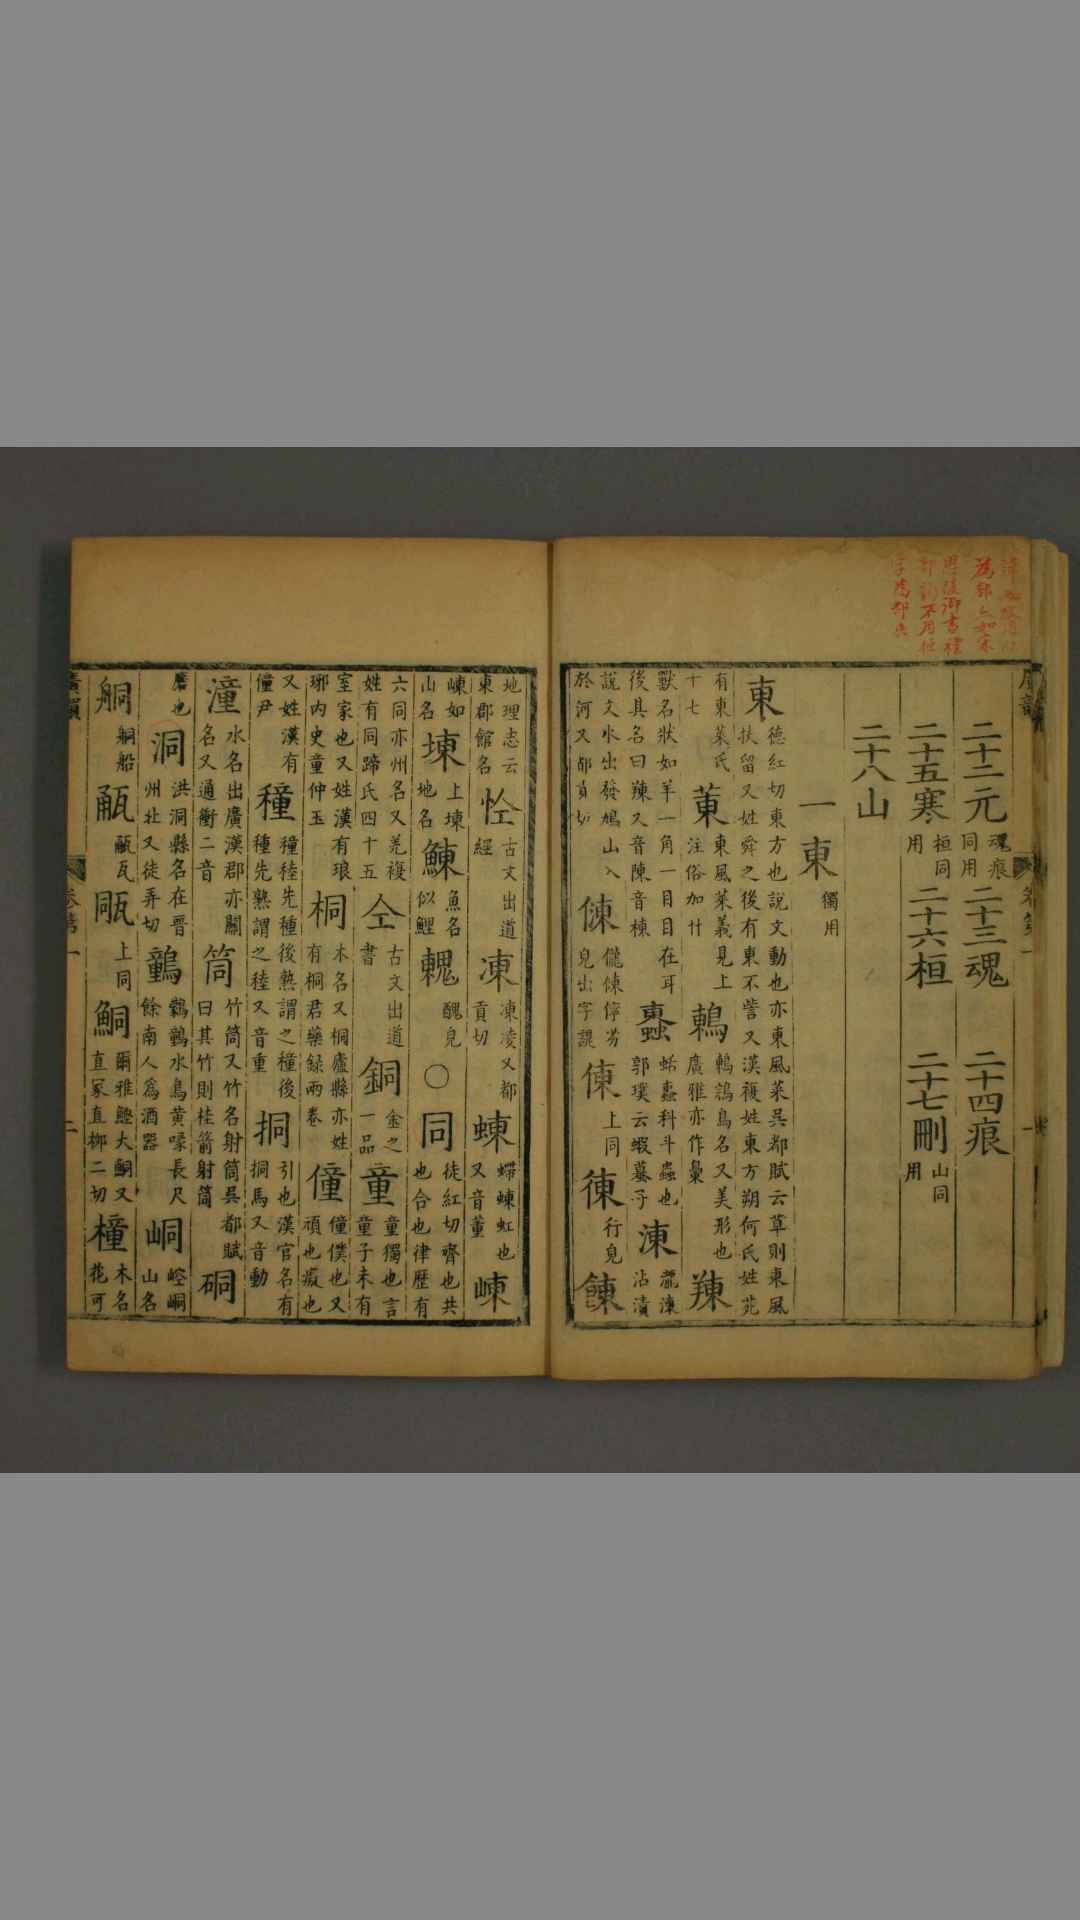 二十二元魂痕同用二十三魂　二十四痕
二十五寒桓同用二十六桓　二十七刪山同用
二十八山
一東獨用
東德紅切東方也說文動也亦東風菜吳都賦云草則東風扶留又姓舜之後有東不訾又漢複姓東方朔何氏姓苑
有東萊氏十七菄東風菜義見上注俗加艹鶇鶇鵍鳥名又美形也廣雅亦作䳉䍶
獸名狀如羊一角一目目在耳後其名曰䍶又音陳音棟䗬蛞䗬科斗蟲也郭璞云蝦蟇子涷瀧涷沾漬
說文水出發鳩山入於河又都貢切倲儱倲儜劣皃出字諟㑈上同徚行皃餗
地理志云東郡館名㤏古文出道經凍凍凌又都貢切蝀螮蝀虹也又音董崠
崠如山名埬上埬地名鯟魚名似鯉䰤醜皃○同徒紅切齊也共也合也律歷有
六同亦州名又羌複姓有同蹄氏四十五仝古文出道書銅金之一品童童獨也言童子未有
室家也又姓漢有琅琊內史童仲玉桐木名又桐廬縣亦姓有桐君藥録兩卷僮僮僕也又頑也癡也
又姓漢有僮尹穜穜稑先種後熟謂之穜後種先熟謂之稑又音重挏引也漢官名有挏馬又音動
潼水名出廣漢郡亦關名又通衝二音筒竹筒又竹名射筒吳都賦曰其竹則桂箭射筒硐
磨也洞洪洞縣名在晉州北又徒弄切鷋鸐鷋水鳥黃喙長尺餘南人爲酒器峒崆峒山名
舸舸船㼧㼧瓦𤭁上同鮦爾雅鰹大鮦又直冢直柳二切橦木名花可